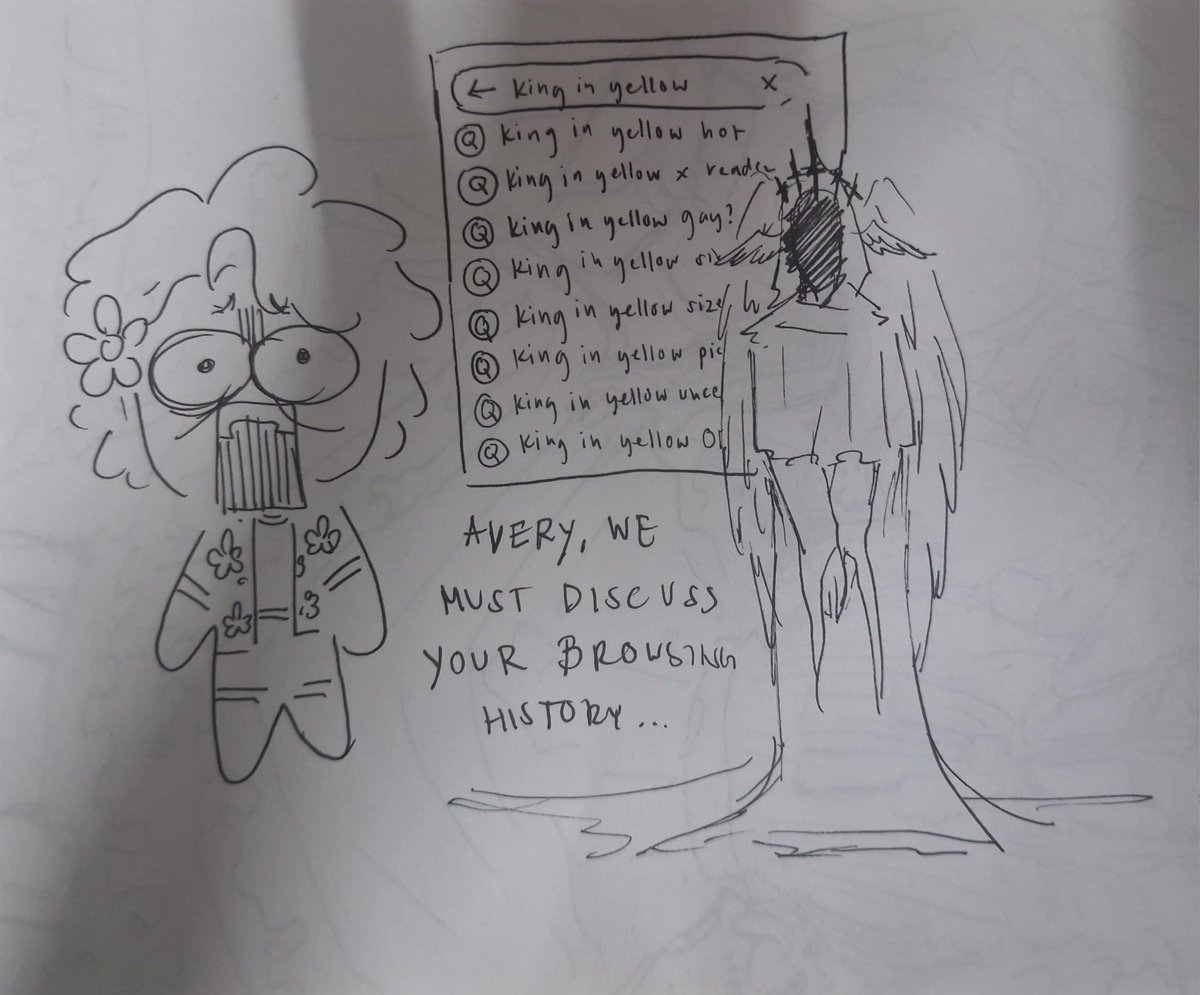 ← king in yellow x
king in yellow hot
king in yellow x
king in yellow gay?
king in yellow
king in yellow size
king in yellow
king in yellow
king in yellow
AVERY, WE
MUST DISCUSS
YOUR BROWSING
HISTORY...